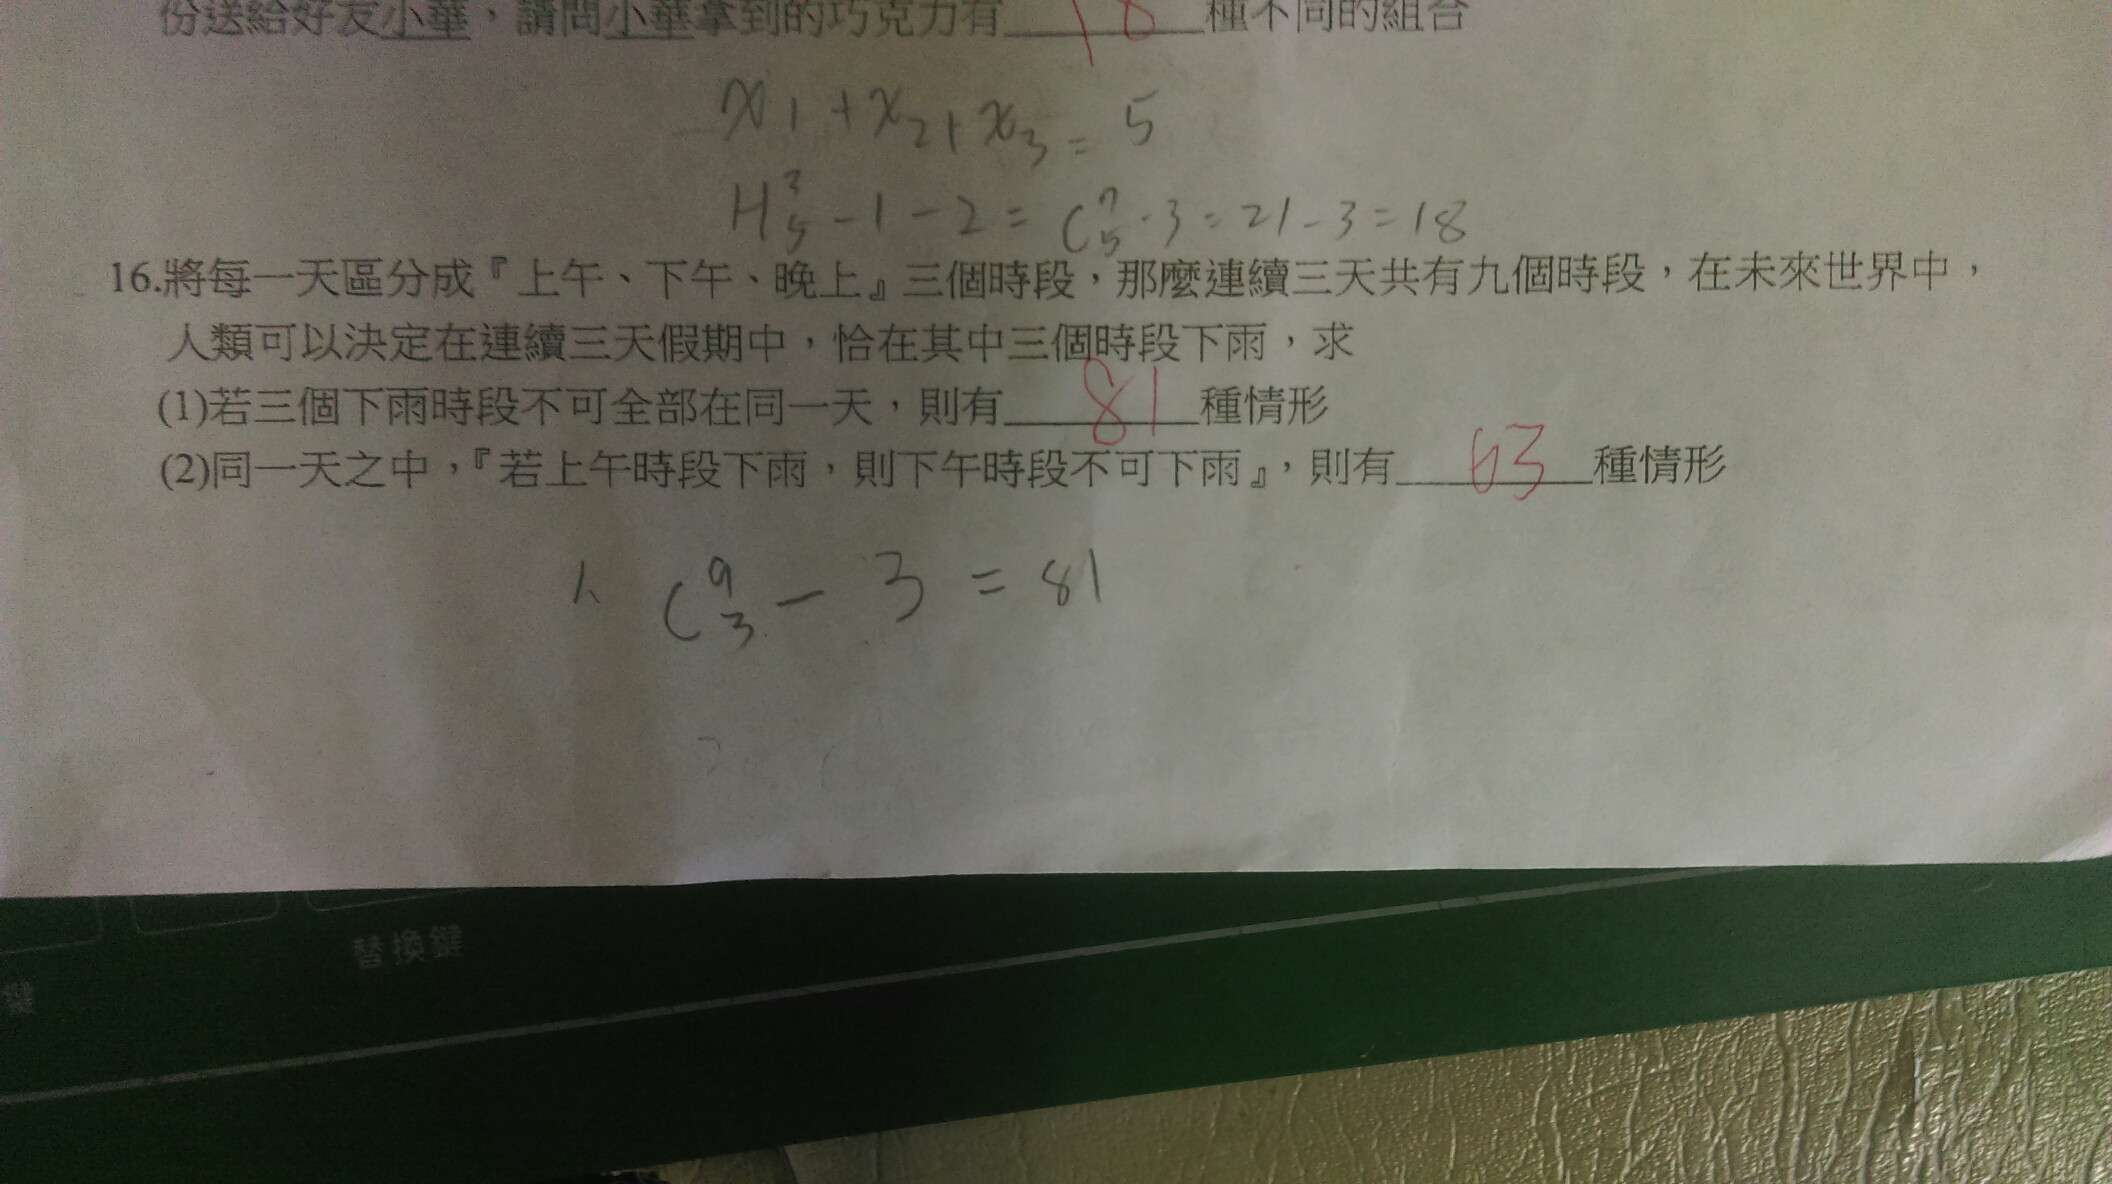 份送給好友小華，請問小華拿到的巧克力有 18 種不同的組合
x1+x2+x3=5
H³₅-1-2=C⁷₅-3=21-3=18
16.將每一天區分成『上午、下午、晚上』三個時段，那麼連續三天共有九個時段，在未來世界中，
人類可以決定在連續三天假期中，恰在其中三個時段下雨，求
(1)若三個下雨時段不可全部在同一天，則有 81 種情形
(2)同一天之中，『若上午時段下雨，則下午時段不可下雨』，則有 63 種情形
1、C⁹₃-3=81
替換鍵
鍵